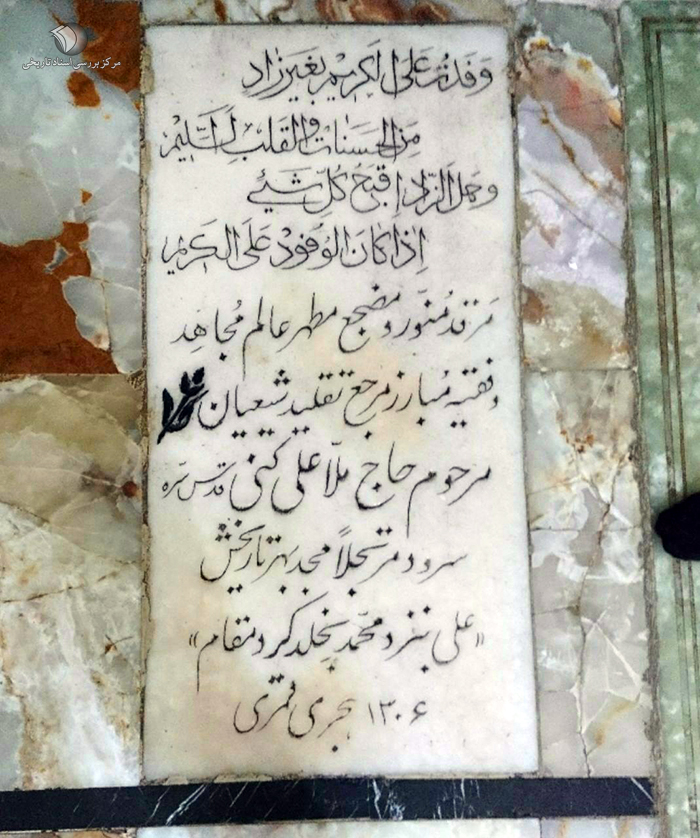 مرکز بررسی اسناد تاریخی
وَفَدْتُ عَلَی الکَریمِ بِغَیرِ زادٍ
مِنَ الحَسَناتِ وَالقَلبِ السَّلیمِ
وَحَملُ الزّادِ اَقبَحُ کُلِّ شَیئٍ
اِذا کانَ الوُفُودُ عَلَی الکَریمِ
مرقد مُنوّر و مضجع مطهر عالم مُجاهِد
و فقیه مُبارز مرجع تقلید شیعیان
مرحوم حاج ملّا علی کنی قدّس سره
سرود مرتجلاً مجد بهر تاریخش
«علی بنزد محمّد بخلد کرد مقام»
۱۳۰۶ هجری قمری